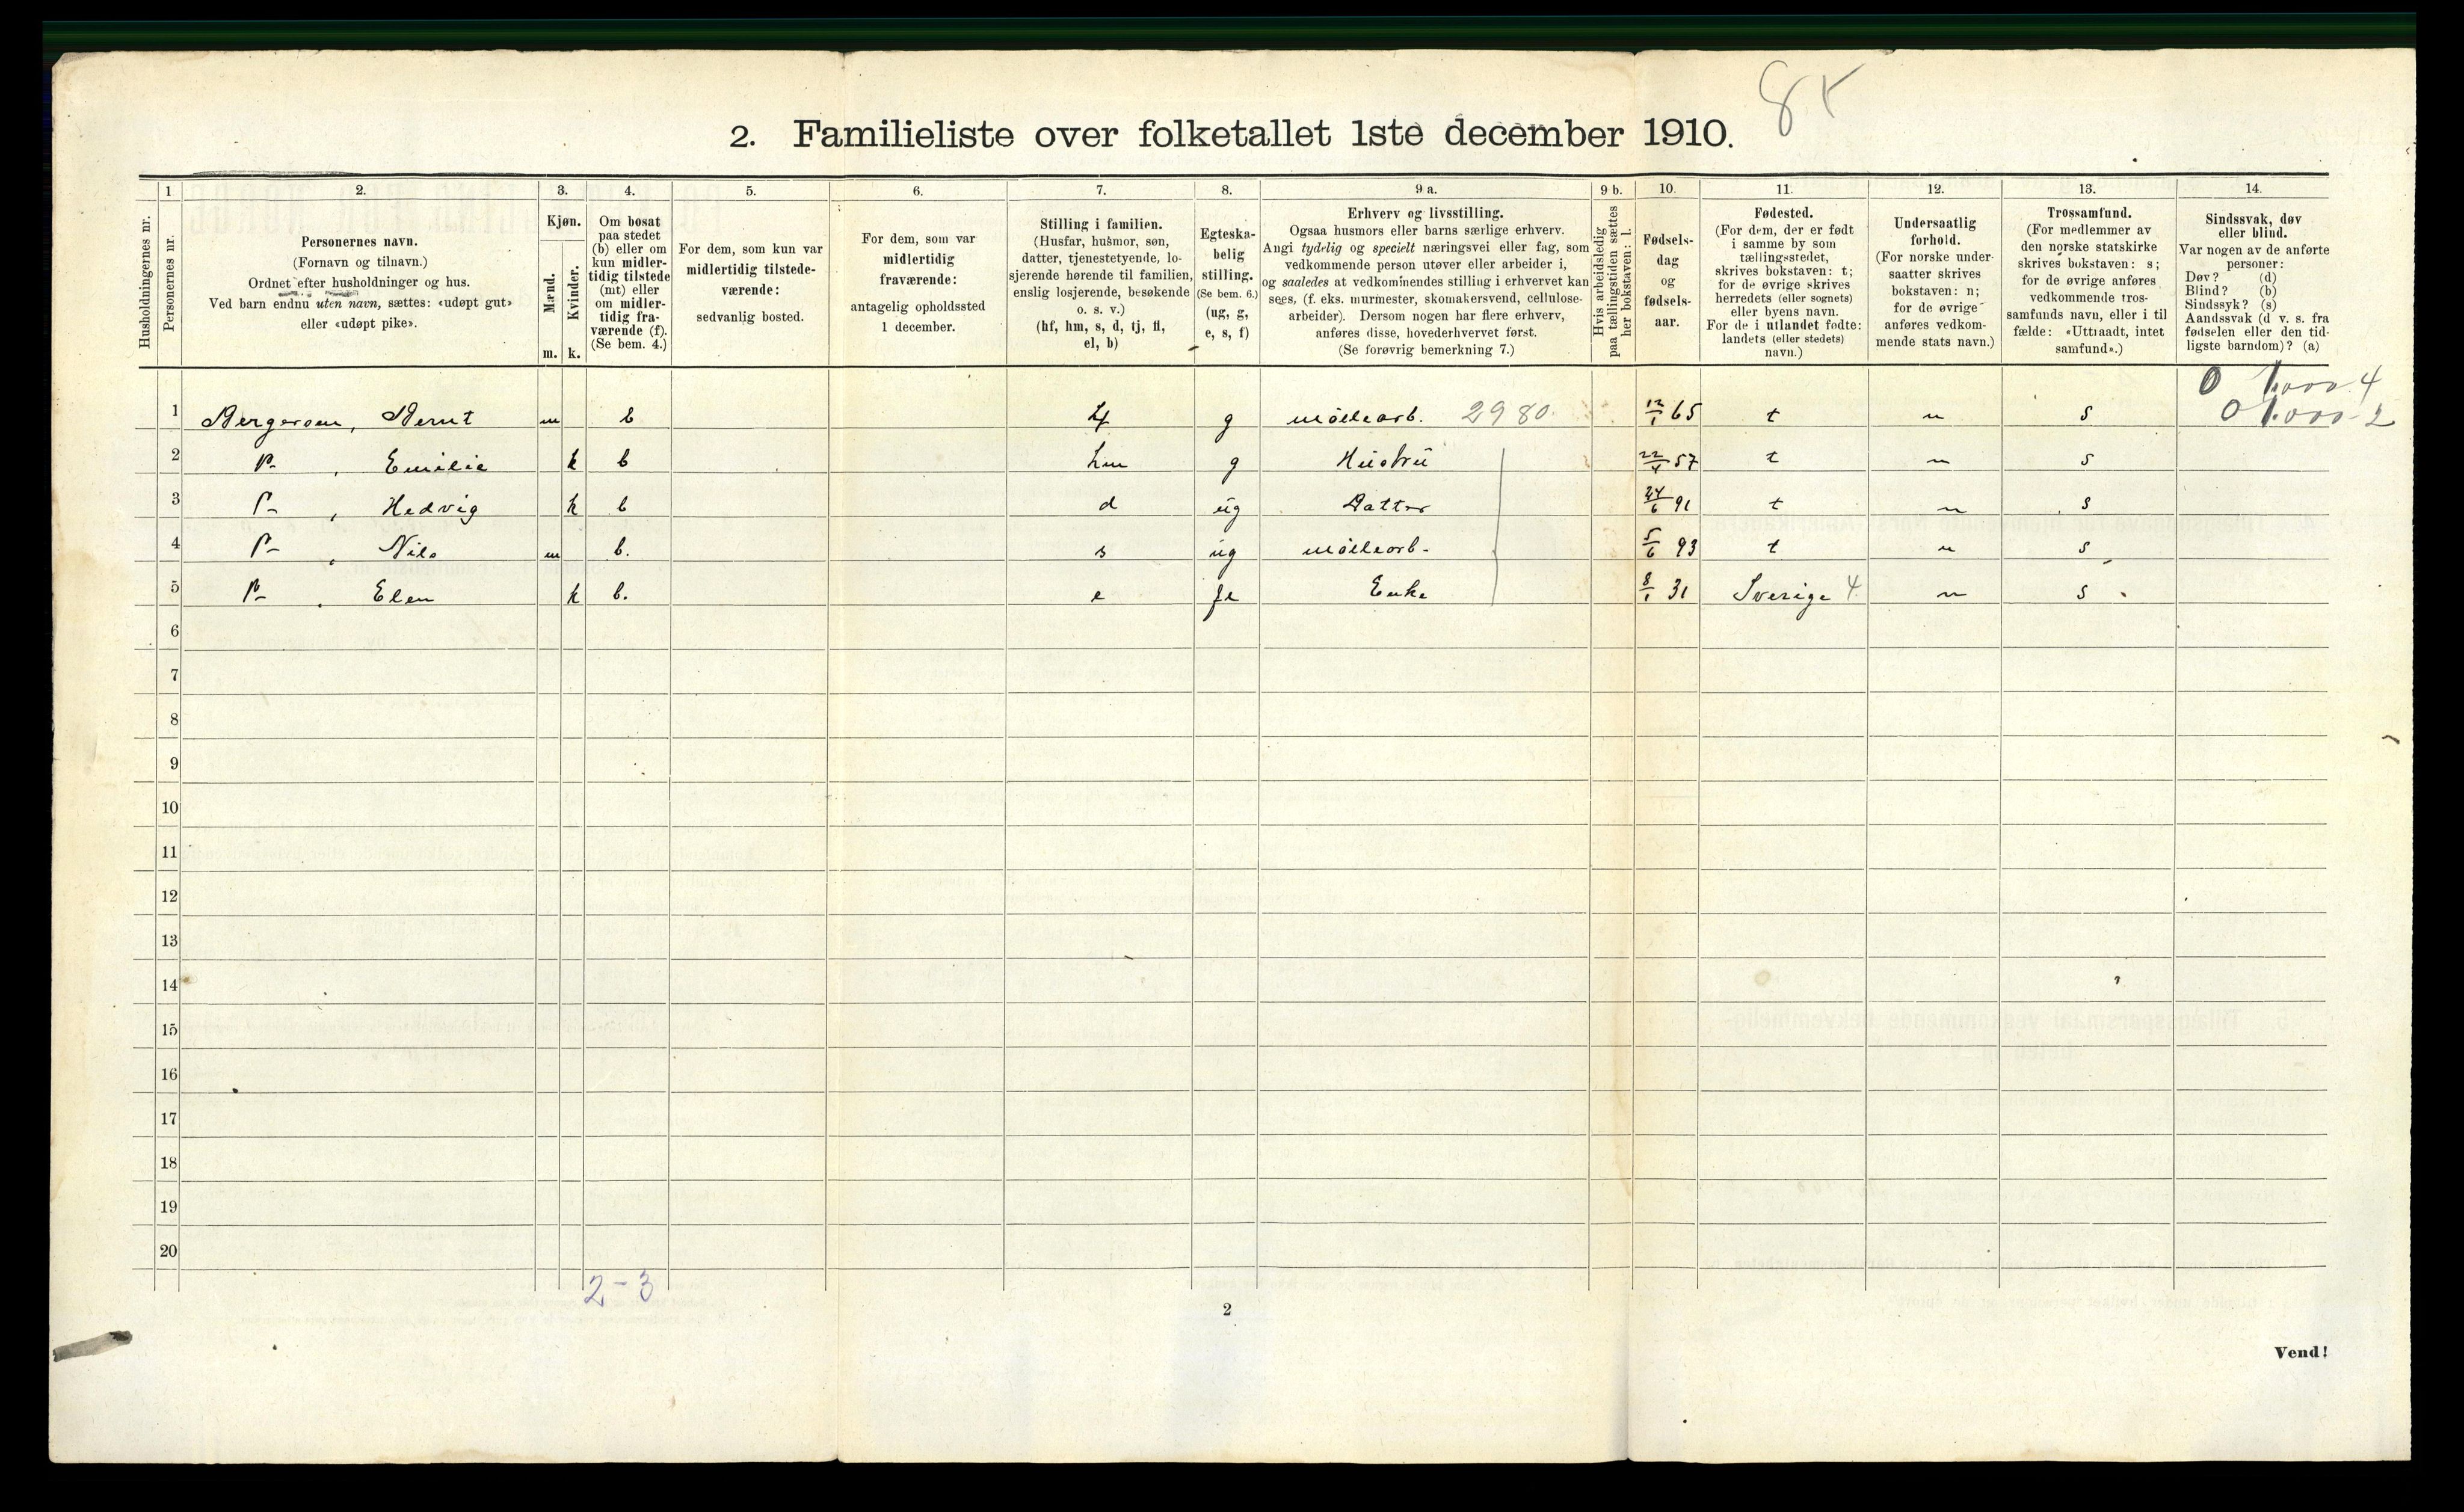 8
2. Familieliste over folketallet 1ste december 1910.
1 2. 3. 4. 5. 6. 7. 8. 9 a. 9 b. 10. 11. 12. 13. 14.
Husholdningernes nr.
Personernes nr.
Personernes navn.
(Fornavn og tilnavn.)
Ordnet efter husholdninger og hus.
Ved barn endnu uten navn, sættes: «udøpt gut»
eller «udøpt pike».
Kjøn.
Mænd.
Kvinder.
m. k.
Om bosat
paa stedet
(b) eller om
kun midler-
tidig tilstede
(mt) eller
om midler-
tidig fra-
værende (f).
(Se bem. 4.)
For dem, som kun var
midlertidig tilstede-
værende:
sedvanlig bosted.
For dem, som var
midlertidig
fraværende:
antagelig opholdssted
1 december.
Stilling i familien.
(Husfar, husmor, søn,
datter, tjenestetyende, lo-
sjerende hørende til familien,
enslig losjerende, besøkende
o. s. v.)
(hf, hm, s, d, tj, fl,
el, b)
Egteska-
belig
stilling.
(Se bem. 6.)
(ug, g,
e, s, f)
Erhverv og livsstilling.
Ogsaa husmors eller barns særlige erhverv.
Angi tydelig og specielt næringsvei eller fag, som
vedkommende person utøver eller arbeider i,
og saaledes at vedkommendes stilling i erhvervet kan
sees, (f. eks. murmester, skomakersvend, cellulose-
arbeider). Dersom nogen har flere erhverv,
anføres disse, hovederhvervet først.
(Se forøvrig bemerkning 7.)
Hvis arbeidsledig
paa tællingstiden sættes
her bokstaven: l.
Fødsels-
dag
og
fødsels-
aar.
Fødested.
(For dem, der er født
i samme by som
tællingsstedet,
skrives bokstaven: t;
for de øvrige skrives
herredets (eller sognets)
eller byens navn.
For de i utlandet fødte:
landets (eller stedets)
navn.)
Undersaatlig
forhold.
(For norske under-
saatter skrives
bokstaven: n;
for de øvrige
anføres vedkom-
mende stats navn.)
Trossamfund.
(For medlemmer av
den norske statskirke
skrives bokstaven: s;
for de øvrige anføres
vedkommende tros-
samfunds navn, eller i til
fælde: «Uttraadt, intet
samfund».)
Sindssvak, døv
eller blind.
Var nogen av de anførte
personer:
Døv? (d)
Blind? (b)
Sindssyk? (s)
Aandssvak (d v. s. fra
fødselen eller den tid-
ligste barndom)? (a)
1 Bergersen, Bernt m b hf g møllearb. 2980 12/1 65 t n s
2 , Emilie k b hm g Hustru 22/4 57 t n s
3 , Hedvig k b d ug Datter 24/6 91 t n s
4 , Nils m b. s ug møllearb. 5/6 93 t n s
5 , Elen k b. e Enke 8/1 31 Sverige 4 n s
6
7
8
9
10
11
12
13
14
15
16
17
18
19
20
2-3
2
Vend!